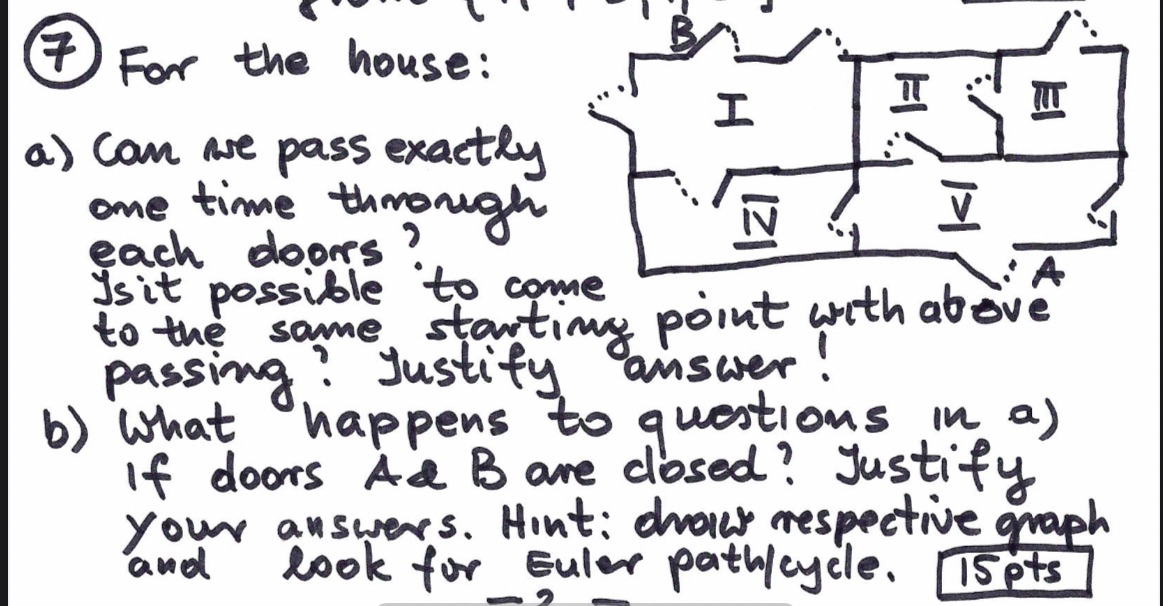 7 For the house:
a) Can we pass exactly
one time through
each doors?
Is it possible to come
to the same starting point with above
passing? Justify answer!
b) What happens to questions in a)
if doors A & B are closed? Justify
your answers. Hint: draw respective graph
and look for Euler path/cycle. 15 pts
B
I
II
III
IV
V
A